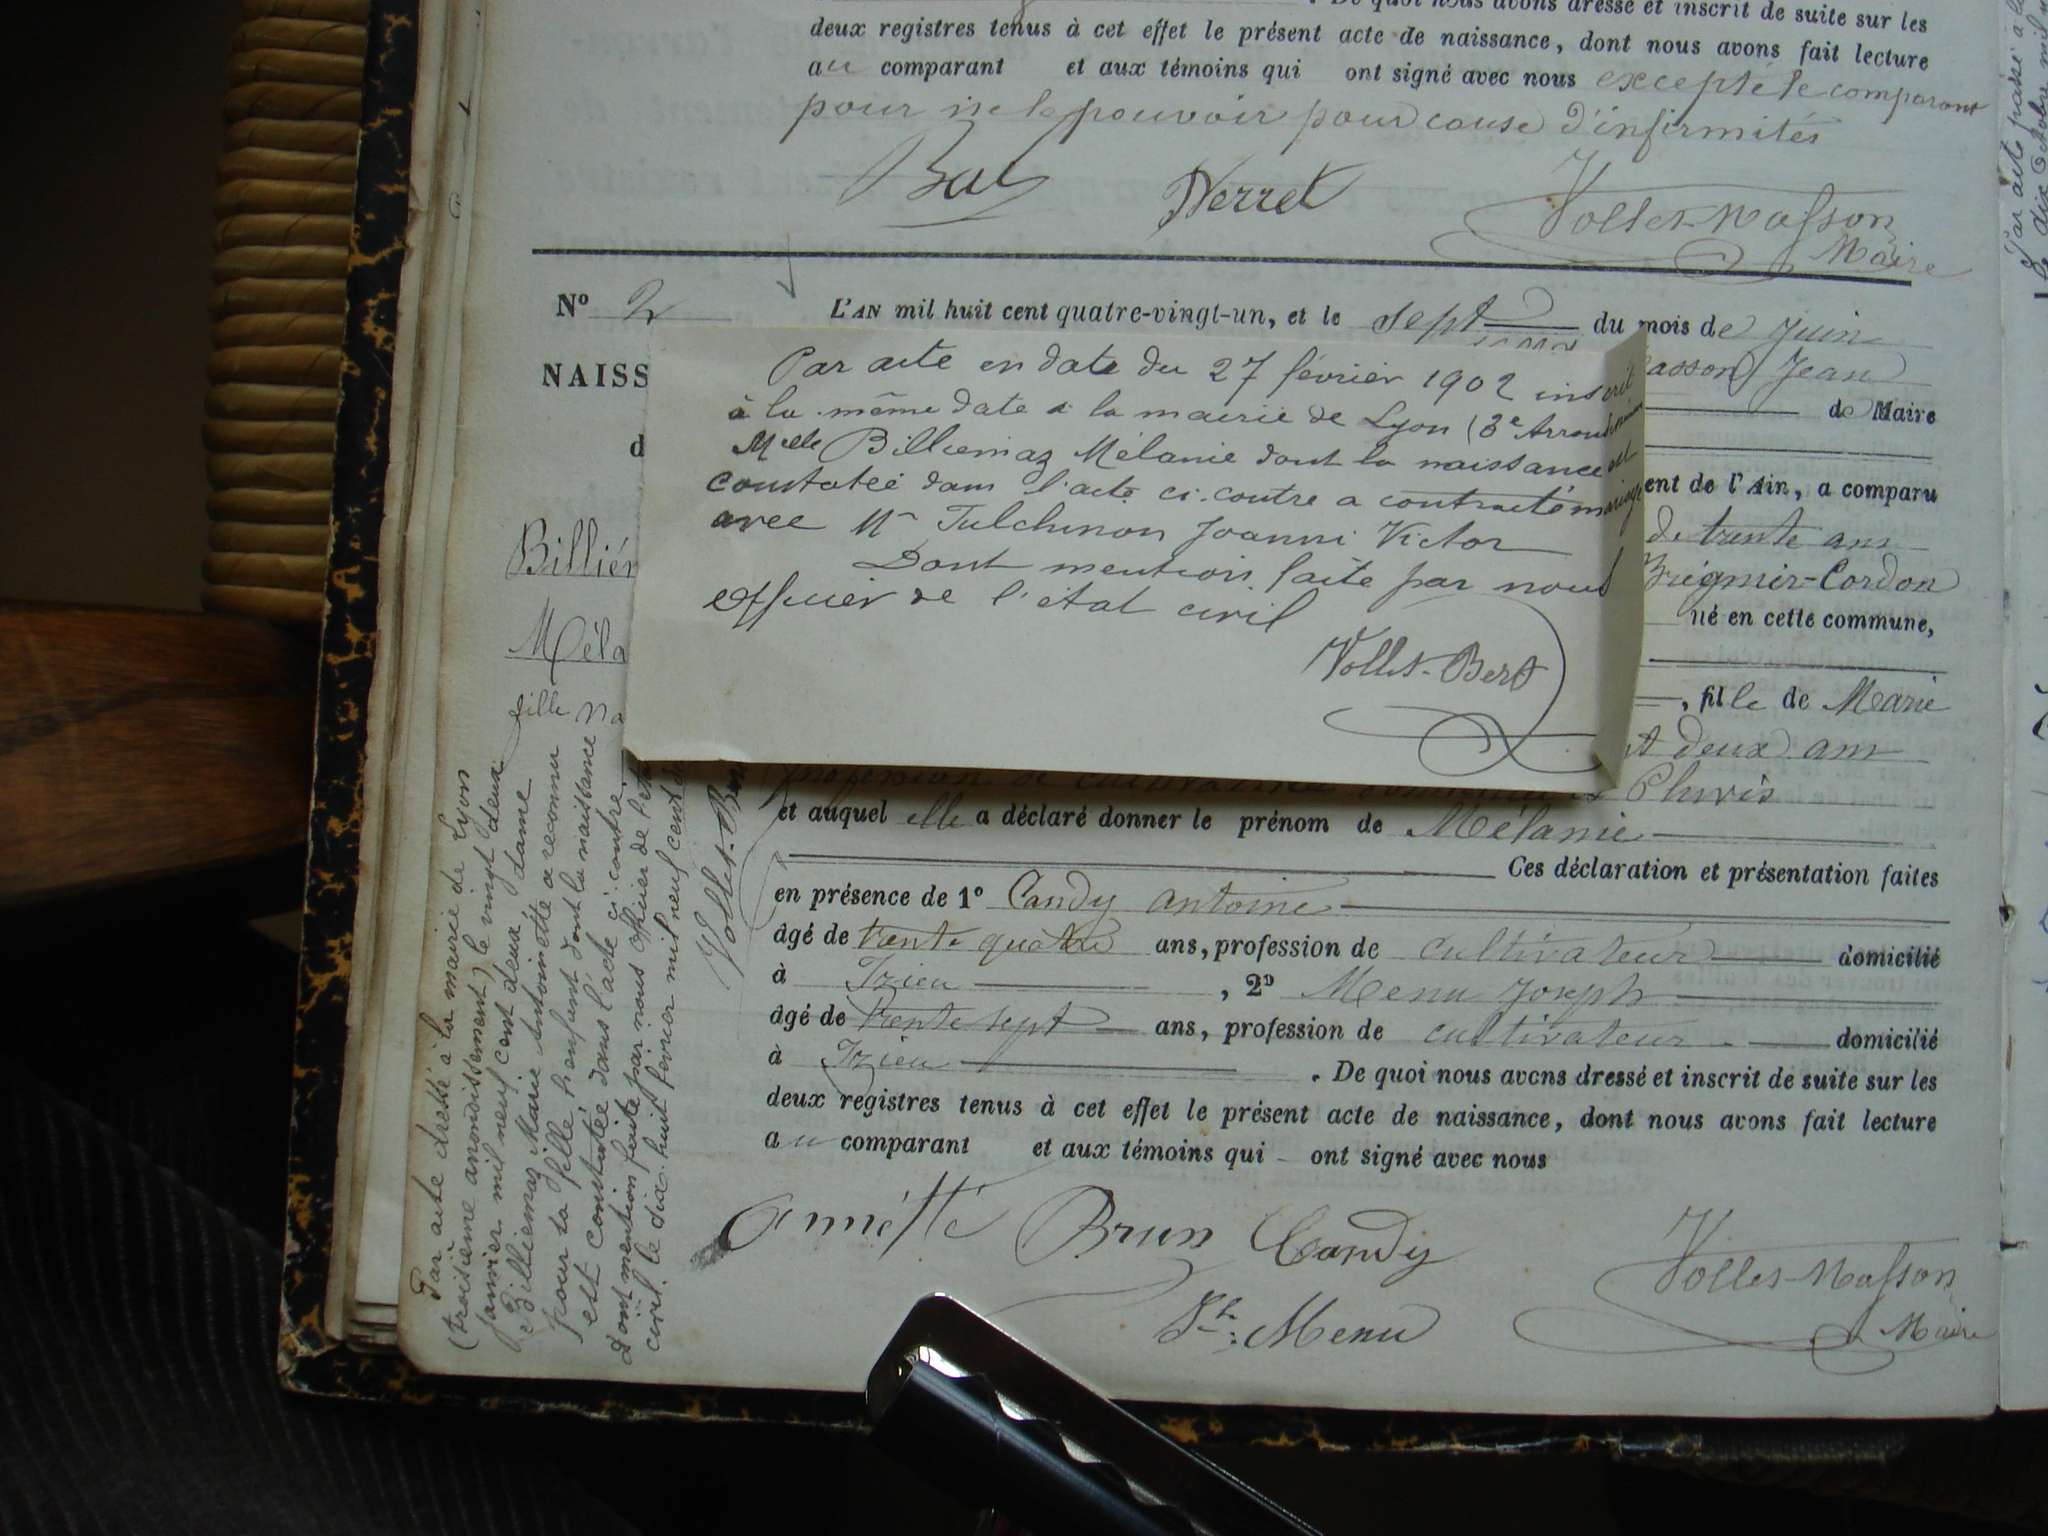 . De quoi nous avons dressé et inscrit de suite sur les
deux registres tenus à cet effet le présent acte de naissance, dont nous avons fait lecture
au comparant et aux témoins qui ont signé avec nous excepté le comparant
pour ne le pouvoir pour cause d'infirmités
Bal Nerret Vollet-Masson
Maire
Nº 2
L'AN mil huit cent quatre-vingt-un, et le sept du mois de Juin
NAISS
asson Jean
de Maire
d
ent de l'Ain, a comparu
de trente ans
Brégnier-Cordon
né en cette commune,
, fille de Marie
deux ans
Billiém
Méla
fille na
Par acte en date du 27 février 1902 inscrit
à la même date à la mairie de Lyon (3e Arrondissement
Melle Billiemaz Mélanie dont la naissance est
constatée dans l'acte ci-contre a contracté mariage
avec Mr Tulchinon Joanni Victor
Dont mention faite par nous
officier de l'état civil
Vollet-Bert
profession de cultivatrice
et auquel elle a déclaré donner le prénom de Mélanie
Ces déclaration et présentation faites
en présence de 1º Candy Antoine
âgé de trente quatre ans, profession de cultivateur domicilié
à Izieu , 2º Menu Joseph
âgé de trente sept ans, profession de cultivateur domicilié
à Izieu . De quoi nous avons dressé et inscrit de suite sur les
deux registres tenus à cet effet le présent acte de naissance, dont nous avons fait lecture
au comparant et aux témoins qui ont signé avec nous
Annétté Brun Candy
Vollet-Masson
Jh Menu
Maire
Par acte dressé à la mairie de Lyon
(troisième arrondissement) le vingt deux
janvier mil neuf cent deux, dame
Billiemaz Marie Antoinette a reconnu
pour sa fille, l'enfant dont la naissance
est constatée dans l'acte ci-contre.
Dont mention faite par nous officier de l'éta
civil le dix-huit février mil neuf cent d
Vollet-Ber